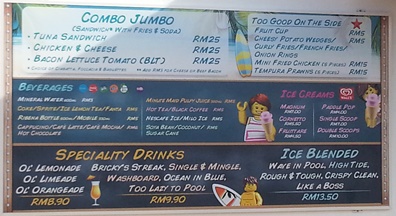 Combo Jumbo
(Sandwich With Fries & Soda)
- Tuna Sandwich RM25
- Chicken & Cheese RM25
- Bacon Lettuce Tomato (BLT) RM25
Too Good On The Side
Fruit Cup RM5
Cheesy Potato Wedges/ RM15
Curly Fries/French Fries/
Onion Rings
Mini Fried Chicken
Tempura Prawns RM15
Beverages
Mineral Water RM5
Coke/Sprite/Ice Lemon Tea/Fanta RM5
Ribena Bottle/Mobile RM5
Cappucino/Cafe Latte/Cafe Mocha/ RM5
Hot Chocolate
Minute Maid Pulpy Juice RM5
Hot Tea/Black Coffee RM5
Nescafe Ice/Milo Ice RM5
Soya Bean/Coconut/ RM5
Sugar Cane
Ice Creams
Magnum
Cornetto
Fruttare
Paddle Pop
Single Scoop
Double Scoops
RM10.00
Specialty Drinks
Ol' Lemonade
Ol' Limeade
Ol' Orangeade
RM8.90
Bricky's Streak, Single & Mingle,
Washboard, Ocean in Blue,
Too Lazy to Pool
RM9.90
Ice Blended
Wave in Pool, High Tide,
Rough & Tough, Crispy Clean,
Like a Boss
RM13.50